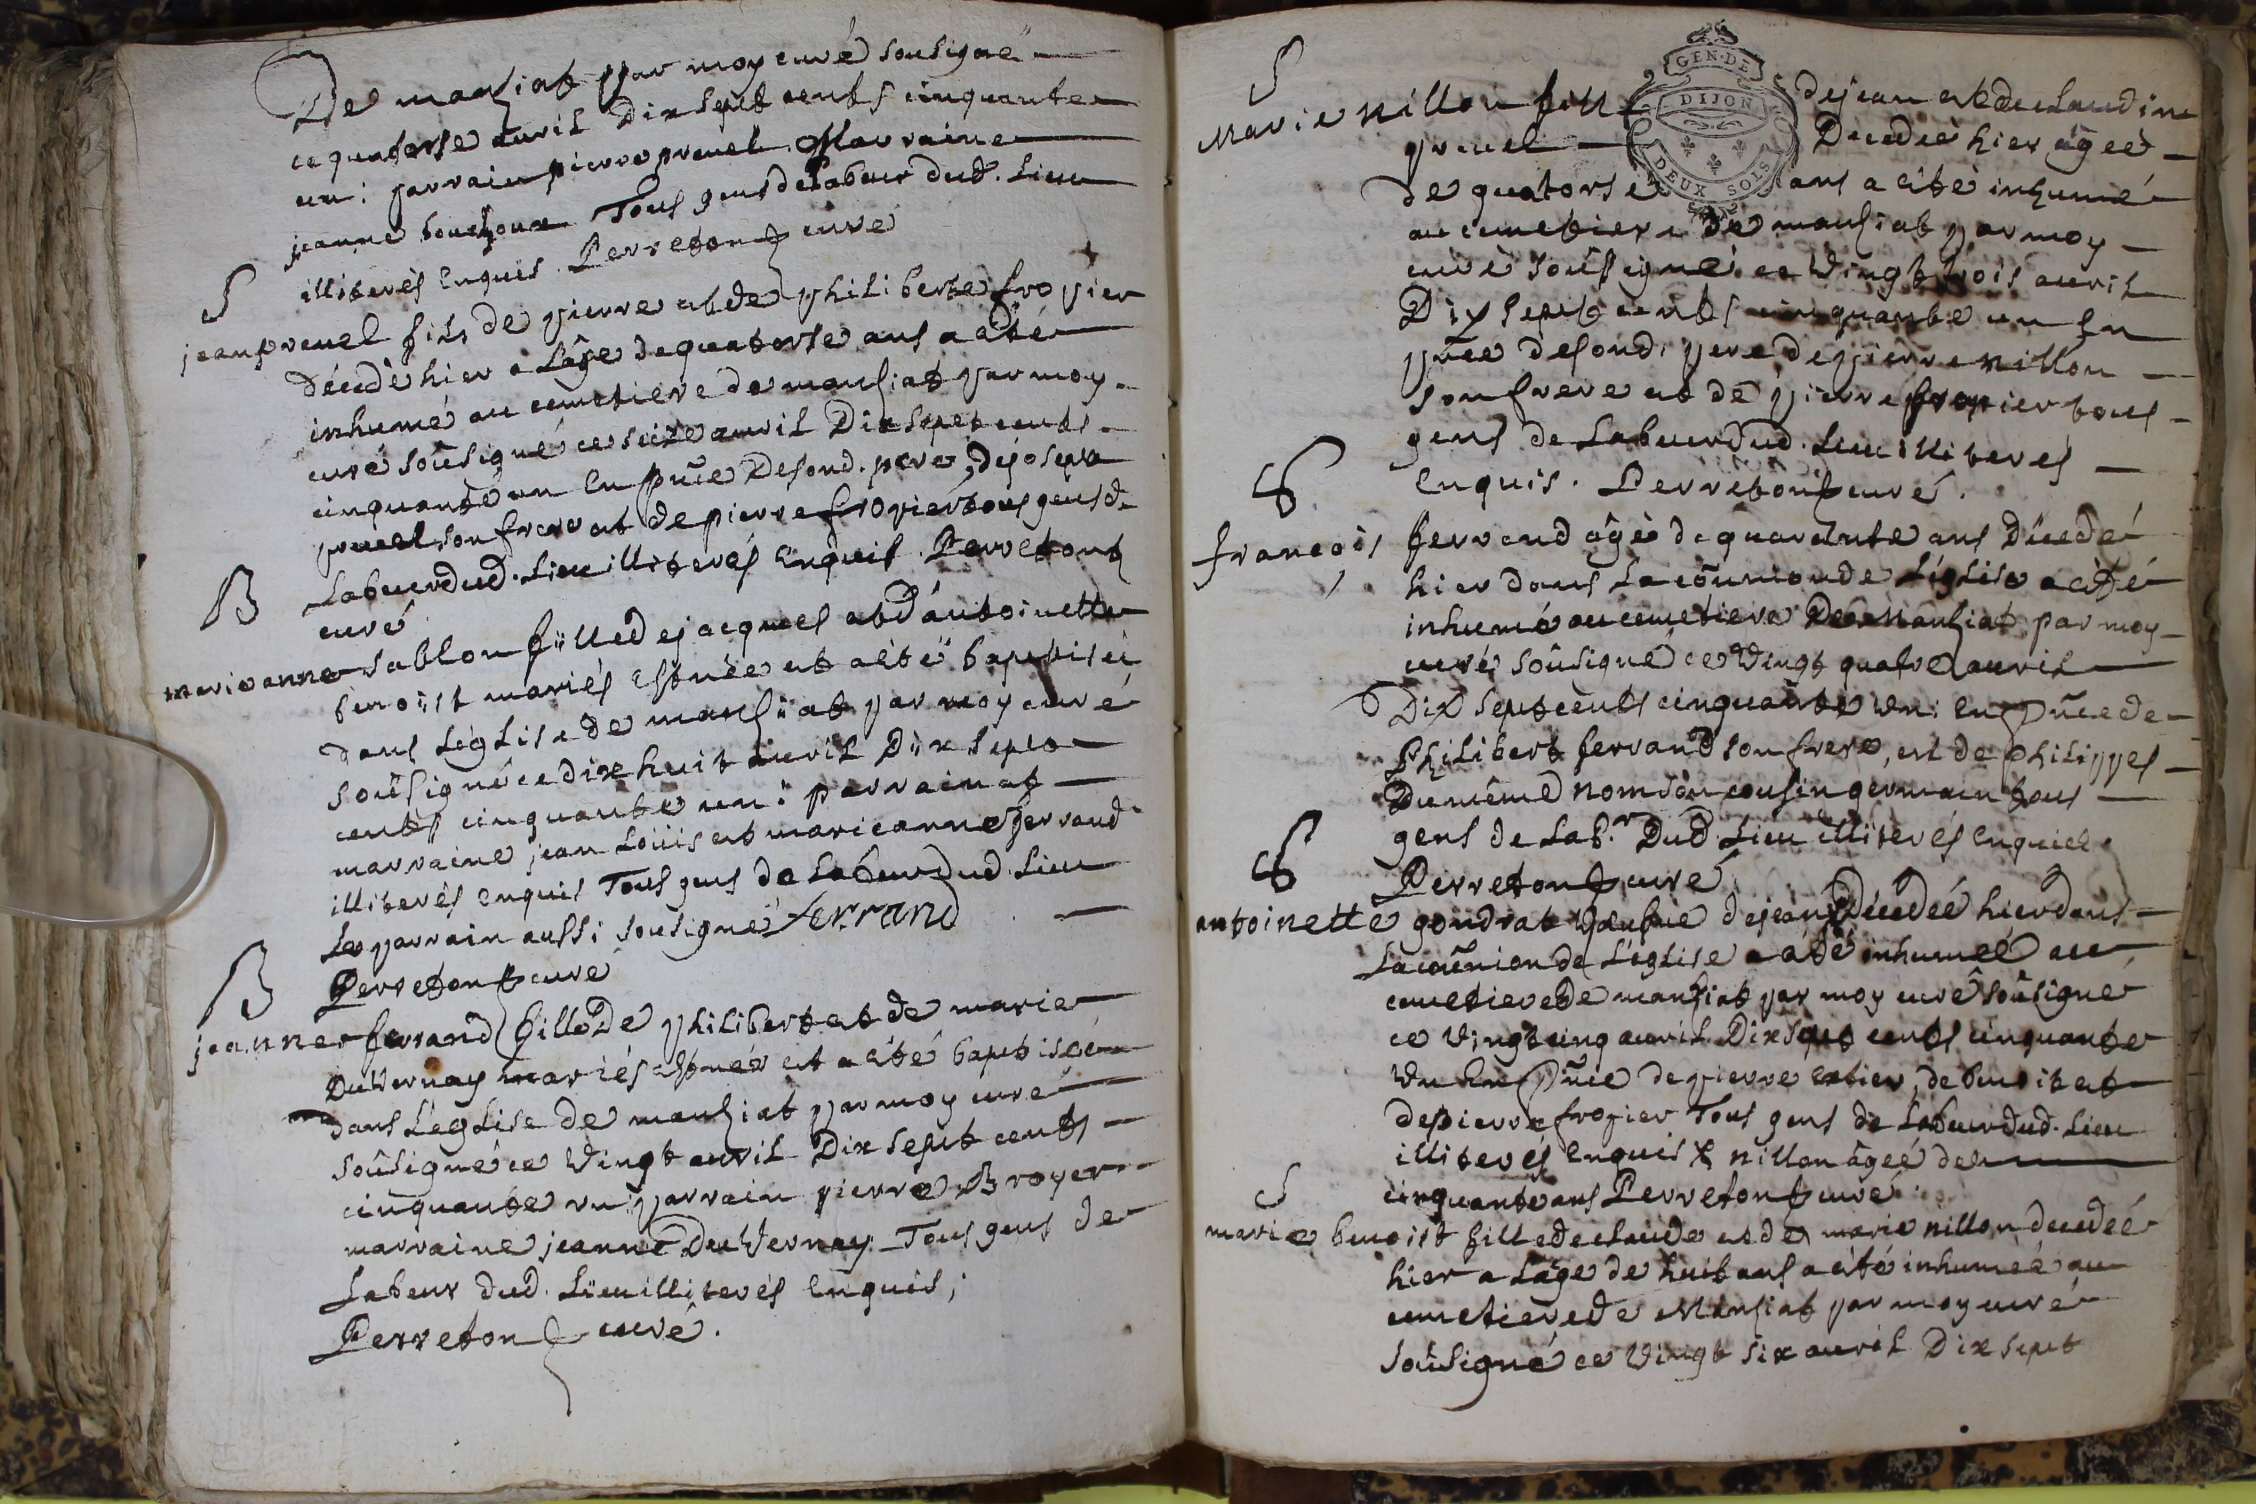 De mansiat par moy curé sousigné
ce quatorse avril Dix sept cents cinquante
un: parrain pierre prevel Marraine
jeanne bouchoux Tous gens de labeur dud. lieu
illiterés Enquis Perreton curé
S
jean prevel fils de pierre et de philiberte fropier
décedé hier a L'âge de quatorse ans a eté
inhumé au cimetiere de mansiat par moy
curé soûsigné ce seize avril Dix sept cents
cinquante un En pñce Desond. pere, de joseph
prevel son frere et de pierre fropier tous gens de
Labeur dud. Lieu illiterés Enquis Perreton
curé
B
marieanne sablon fille de jacques et d'antoinette
benoist mariés Est née et a eté baptisée
dans L'eglise de mansiat par moy curé
soûsigné ce dix huit avril Dix sept
cents cinquante un: parrain et
marraine jean Loüis et marieanne ferrand
illiterés enquis Tous gens de Labeur dud. Lieu
Le parrain aussi sousigné ferrand
Perreton curé
B
jeanne ferrand fille De philibert et de marie
DuVernay mariés Est née et a eté baptisée
dans L'eglise de mansiat par moy curé
soûsigné ce Vingt avril Dix sept cents
cinquante un parrain pierre Broyer
marraine jeanne DuVernay Tous gens de
Labeur dud. Lieu illiterés Enquis;
Perreton curé.
S
Marie Nillon fille de jean et de claudine
GEN. DE
DIJON
DEUX SOLS
prevel Decedée hier âgée
De quatorse ans a eté inhumé
au cimetiere De mansiat par moy
curé soûsigné ce Vingt trois avril
Dix sept cents cinquante un En
pñce desond. pere de pierre nillon
son frere et de pierre fropier tous
gens de Labeur dud. Lieu illiterés
Enquis. Perreton curé.
S
françois ferrand âgé de quarante ans Décedé
hier dans La coñmion de L'église a eté
inhumé au cimetiere De Mansiat par moy
curé soûsigné ce Vingt quatre avril
Dix sept cents cinquante Un: En pñce de
Philibert ferrand son frere, et de philippes
Du même nom son cousin germain tous
gens de Lab.r Dud. Lieu illiterés Enquis
Perreton curé
S
antoinette goudrat Veufve de jean Décedée hier dans
La coñmion de L'église a eté inhumeé au
cimetiere De mansiat par moy curé soûsigné
ce Vingt cinq avril Dix sept cents cinquante
Un En pñce de pierre de benoit et
de pierre fropier Tous gens de Labeur dud. Lieu
illiterés Enquis X nillon âgeé de
cinquante ans Perreton curé
S
marie benoist fille de claude et de marie nillon decedeé
hier a L'âge de huit ans a eté inhumeé au
cimetiere de Mansiat par moy curé
soûsigné ce Vingt six avril Dix sept